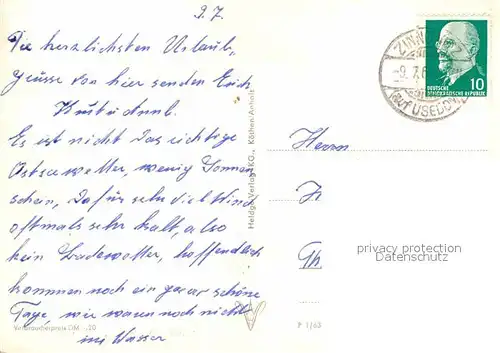 9.7.
Die herzlichsten Urlaub,
grüsse von hier senden Euch
Es ist nicht das richtige
Ostseewetter, wenig Sonnen
schein, dafür sehr viel Wind
oftmals sehr kalt, also
kein Badewetter, hoffendlich
kommen noch ein paar schöne
Tage, wir waren noch nicht
im Wasser
Verbraucherpreis DM -,20
Heldge-Verlag KG., Köthen-Anhalt
P 1/63
-9.7.6
AUF USEDOM
DEUTSCHE
DEMOKRATISCHE REPUBLIK
10
Herrn
privacy protection
Datenschutz